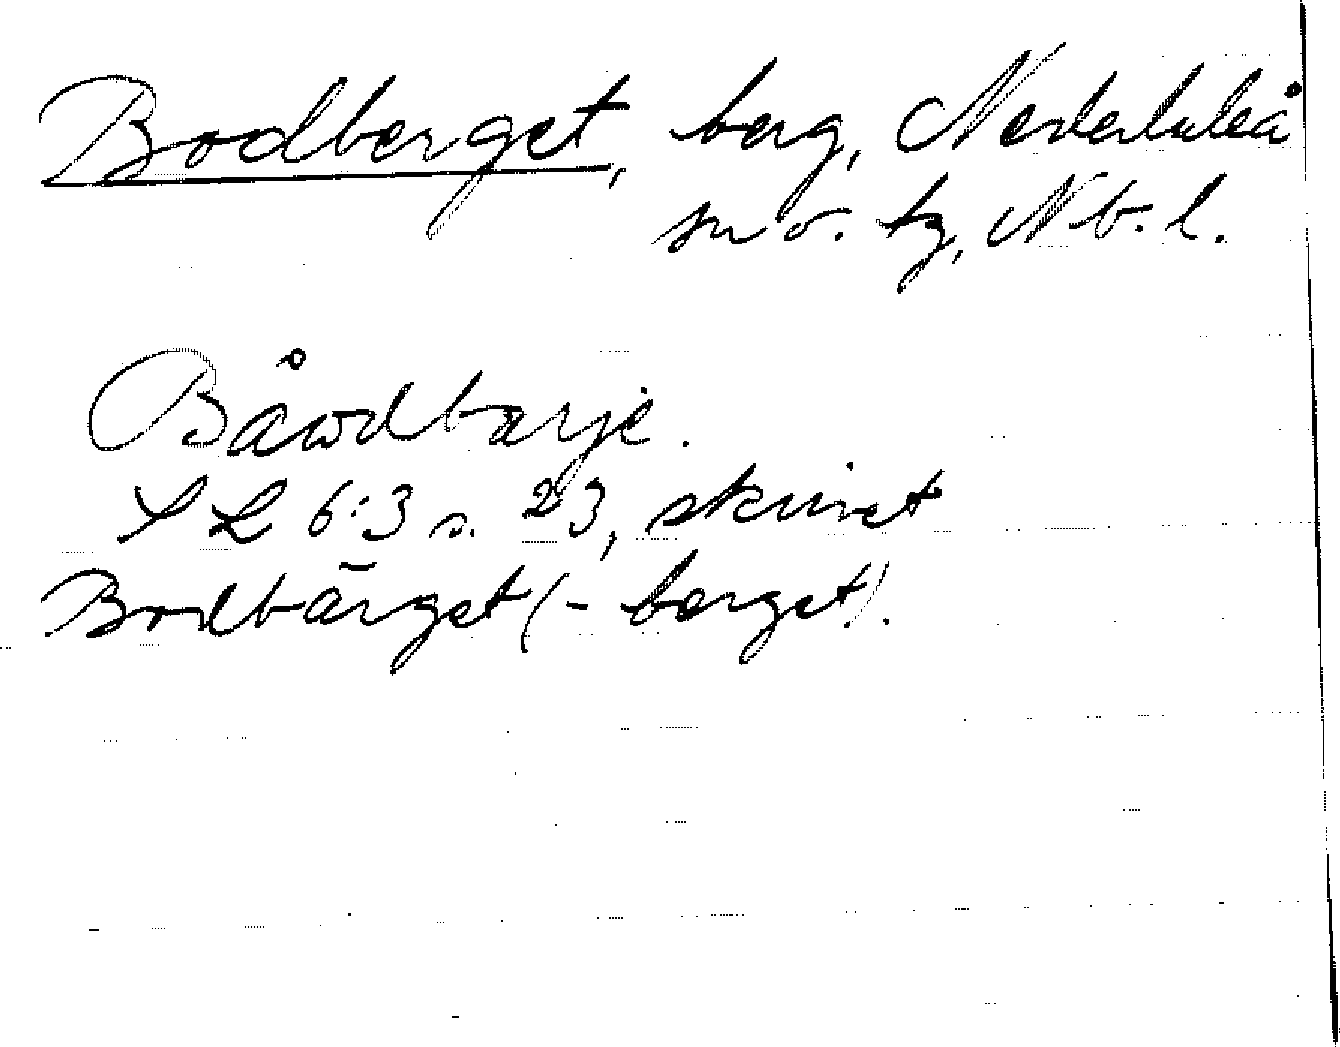 Bodberget, berg, Nederluleå
sn o. tg, Nb. l.
Båwdbarje.
SL 6:3 s. 23, skrivet
Bodbärget (-berget).